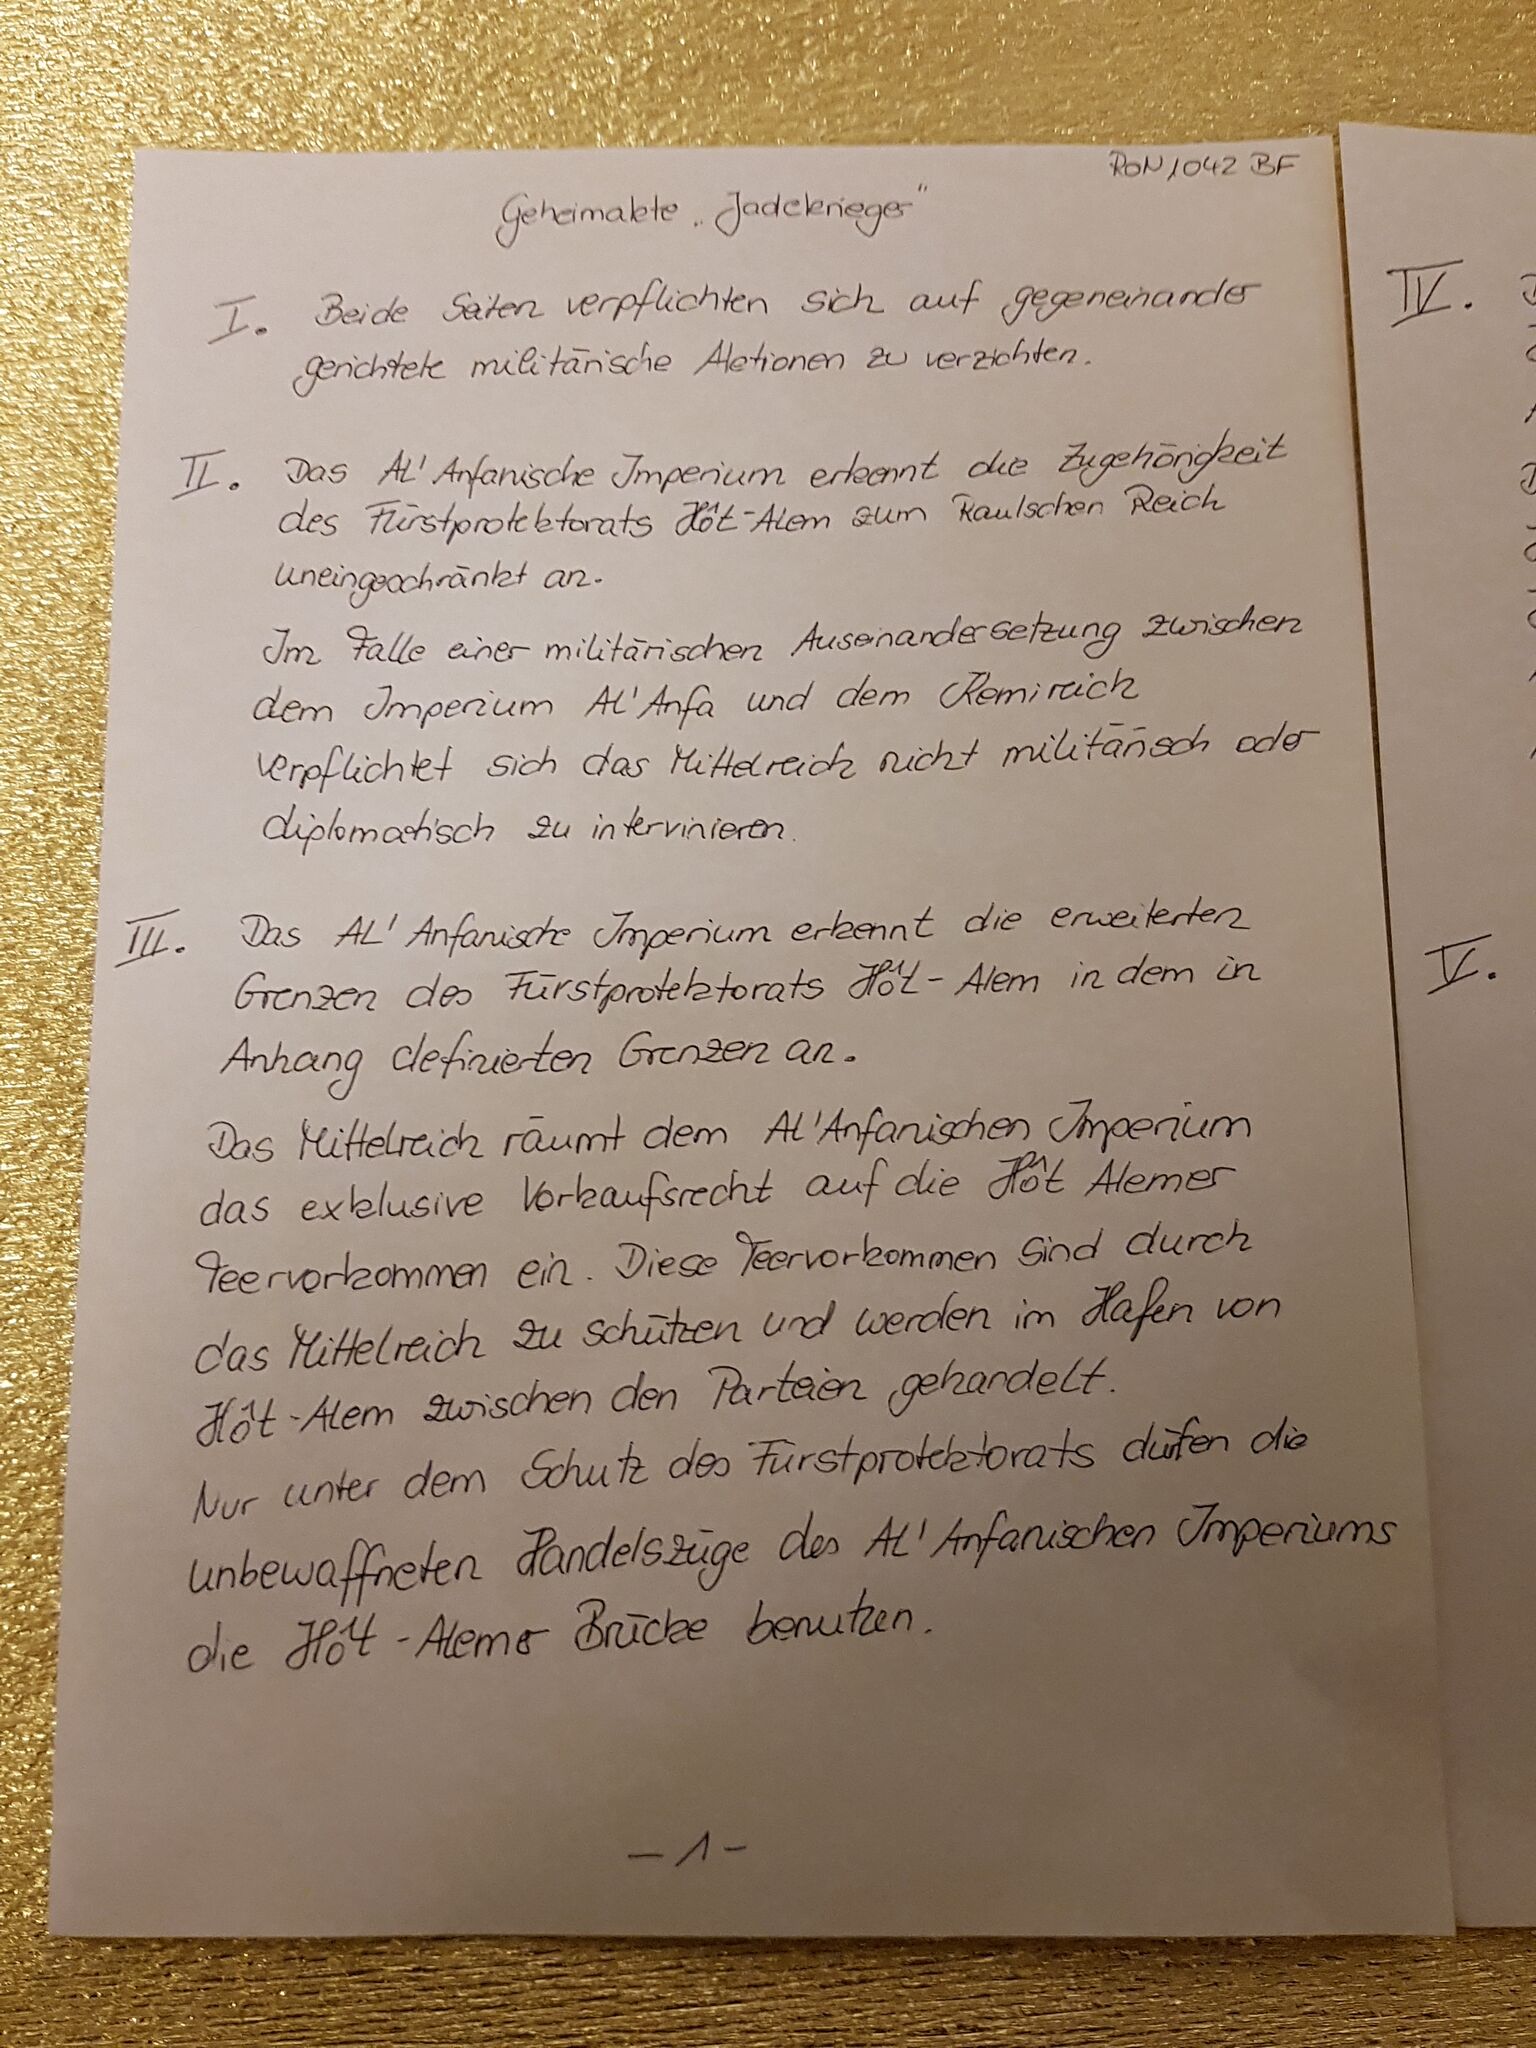 RON 1042 BF
Geheimakte „Jadekrieger"
I. Beide Seiten verpflichten sich auf gegeneinander
gerichtete militärische Aktionen zu verzichten.
II. Das AL'Anfanische Imperium erkennt die Zugehörigkeit
des Fürstprotektorats Hôt-Alem zum Raulschen Reich
uneingeschränkt an.
Im Falle einer militärischen Auseinandersetzung zwischen
dem Imperium AL'Anfa und dem Kemireich
verpflichtet sich das Mittelreich nicht militärisch oder
diplomatisch zu intervinieren.
III. Das AL'Anfanische Imperium erkennt die erweiterten
Grenzen des Fürstprotektorats Hôt-Alem in dem in
Anhang definierten Grenzen an.
Das Mittelreich räumt dem AL'Anfanischen Imperium
das exklusive Vorkaufsrecht auf die Hôt Alemer
Teervorkommen ein. Diese Teervorkommen sind durch
das Mittelreich zu schützen und werden im Hafen von
Hôt-Alem zwischen den Parteien gehandelt.
Nur unter dem Schutz des Fürstprotektorats dürfen die
unbewaffneten Handelszüge des AL'Anfanischen Imperiums
die Hôt-Alemer Brücke benutzen.
- 1 -
IV.
V.